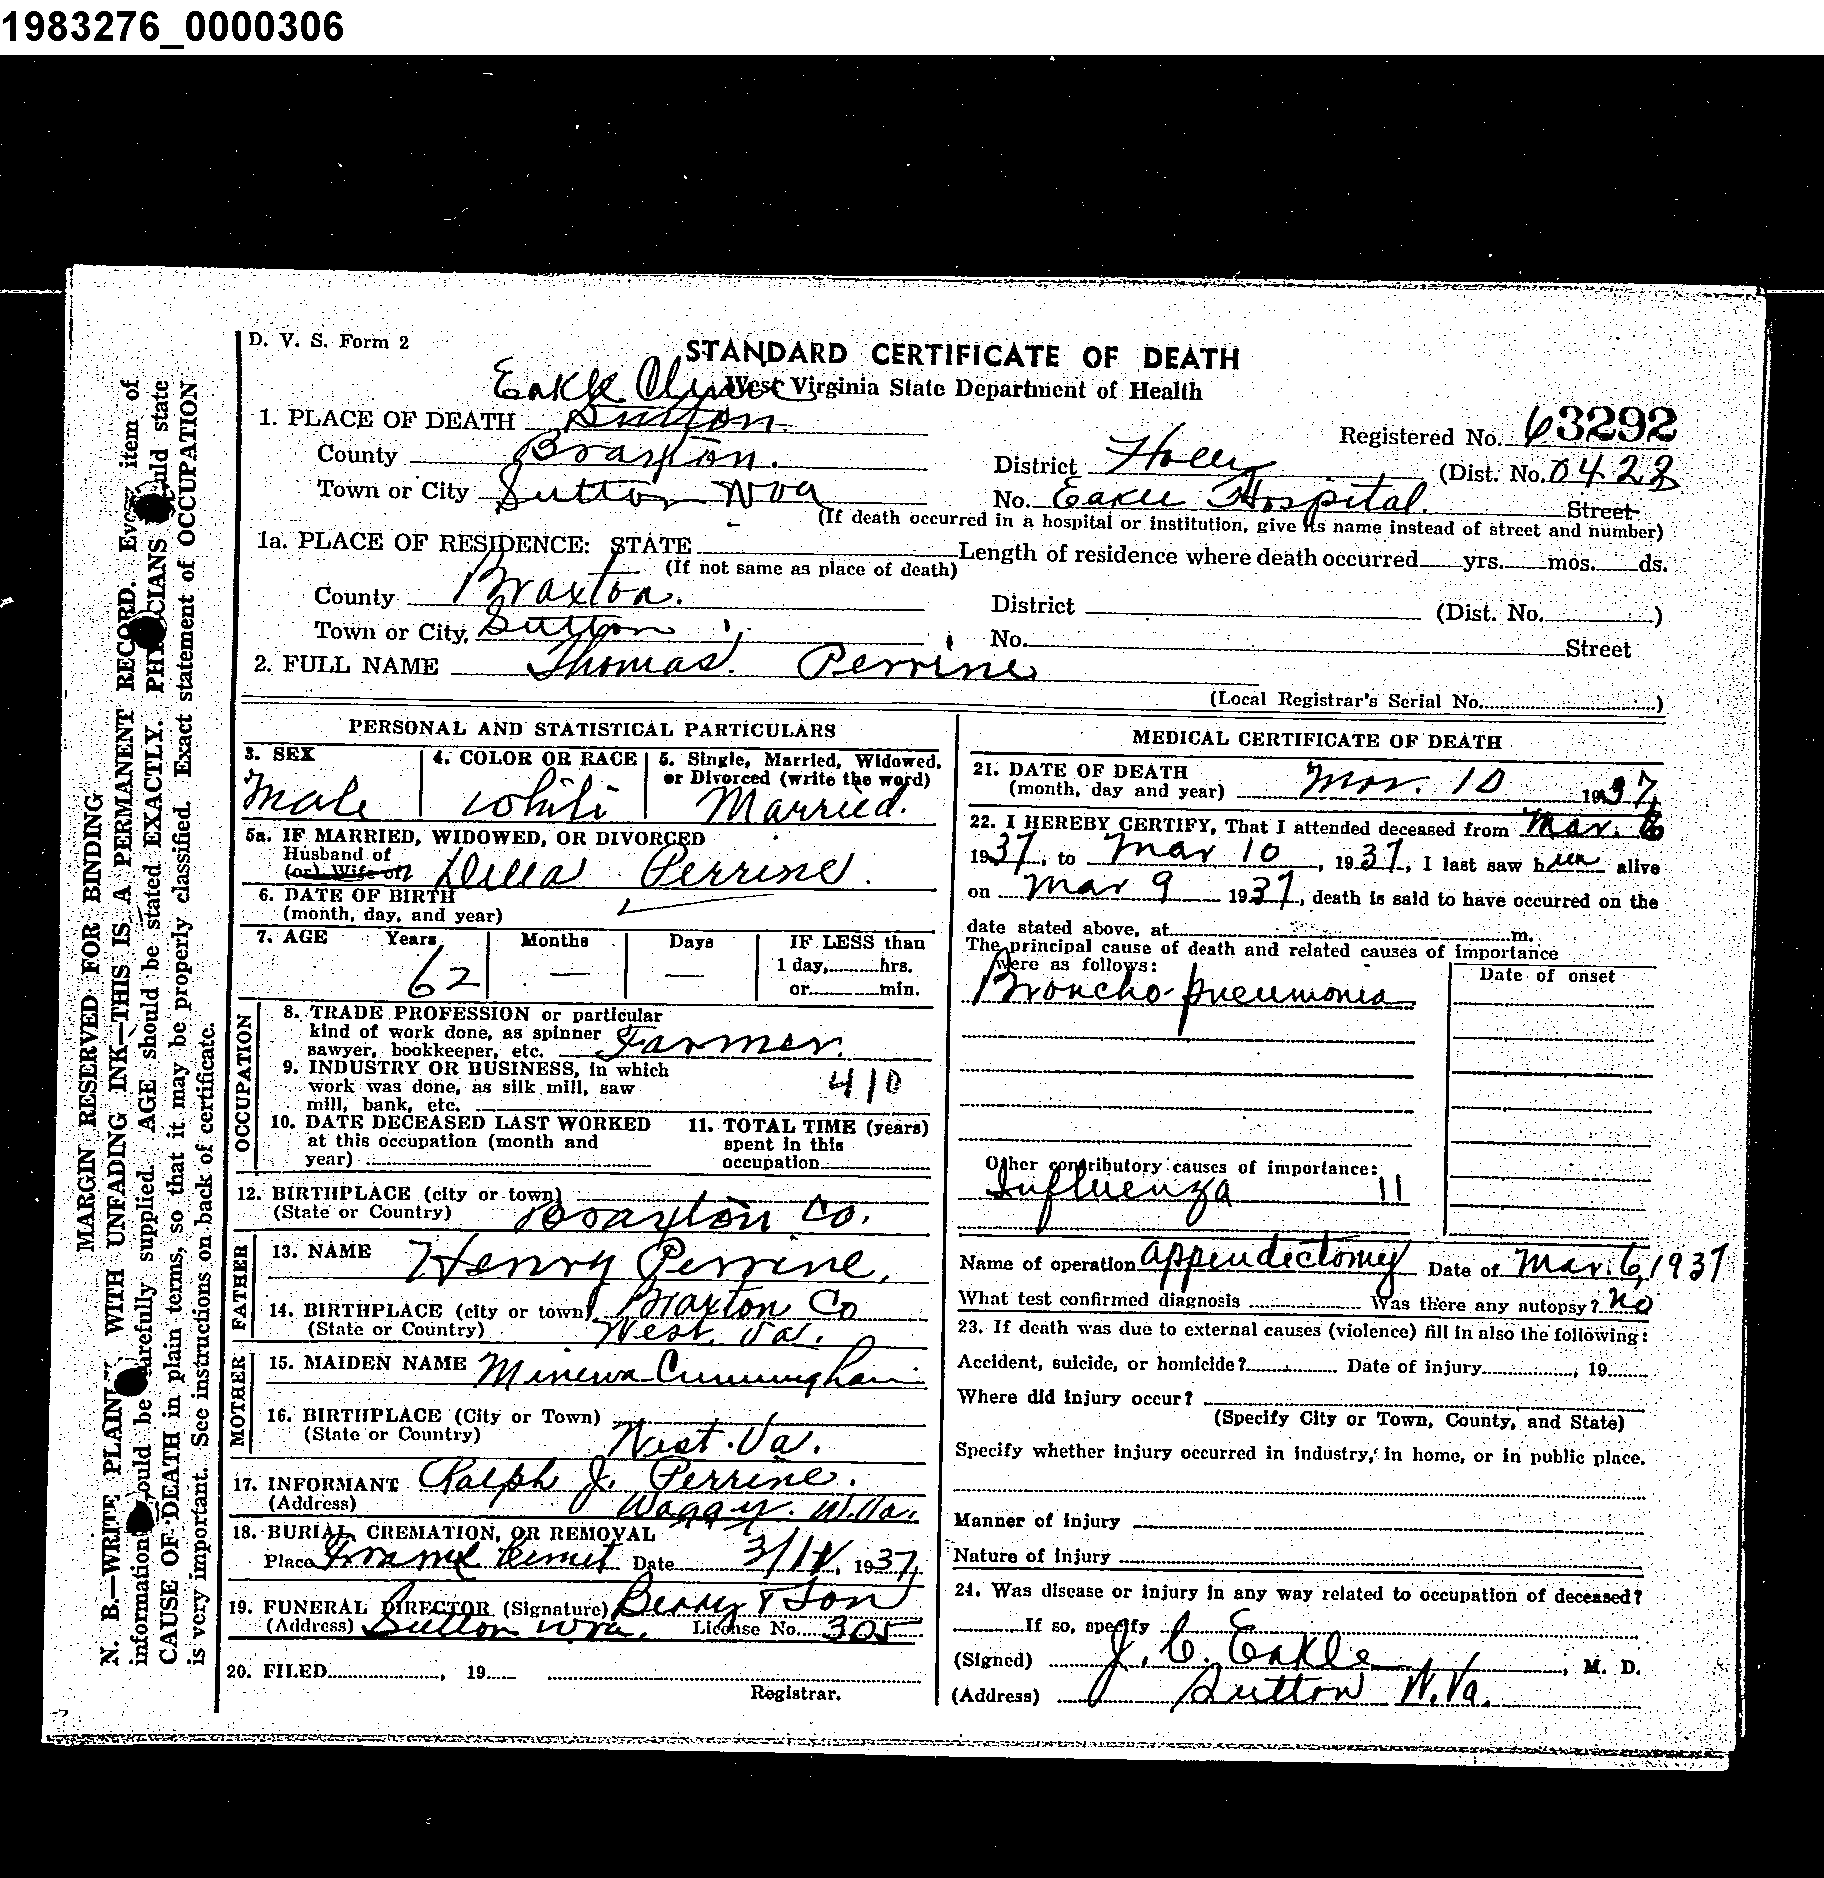 1983276_0000306
D. V. S. Form 2
STANDARD CERTIFICATE OF DEATH
Eakle Clinic West Virginia State Department of Health
1. PLACE OF DEATH Sutton Registered No. 63292
County Braxton. District Holly (Dist. No. 0423
Town or City Sutton W Va No. Eakle Hospital. Street
(If death occurred in a hospital or institution, give its name instead of street and number)
1a. PLACE OF RESIDENCE: STATE Length of residence where death occurred yrs. mos. ds.
(If not same as place of death)
County Braxton. District (Dist. No. )
Town or City, Sutton No. Street
2. FULL NAME Thomas Perrine
(Local Registrar's Serial No. )
PERSONAL AND STATISTICAL PARTICULARS
3. SEX 4. COLOR OR RACE 5. Single, Married, Widowed, or Divorced (write the word)
Male White Married.
5a. IF MARRIED, WIDOWED, OR DIVORCED
Husband of
(or) Wife of Della Perrine.
6. DATE OF BIRTH
(month, day, and year)
7. AGE Years Months Days IF LESS than
1 day, hrs.
62 — — or min.
OCCUPATION
8. TRADE PROFESSION or particular
kind of work done, as spinner
sawyer, bookkeeper, etc. Farmer.
9. INDUSTRY OR BUSINESS, in which
work was done, as silk mill, saw
mill, bank, etc. 410
10. DATE DECEASED LAST WORKED
at this occupation (month and
year)
11. TOTAL TIME (years)
spent in this
occupation
12. BIRTHPLACE (city or town)
(State or Country) Braxton Co.
FATHER
13. NAME Henry Perrine,
14. BIRTHPLACE (city or town) Braxton Co
(State or Country) West. Va.
MOTHER
15. MAIDEN NAME Minerva Cunningham
16. BIRTHPLACE (City or Town)
(State or Country) West. Va.
17. INFORMANT Ralph J. Perrine.
(Address) Waggy. W.Va.
18. BURIAL, CREMATION, OR REMOVAL
Place Date 3/11, 1937
19. FUNERAL DIRECTOR (Signature) Berry & Son
(Address) Sutton W Va. License No. 305
20. FILED , 19
Registrar.
MEDICAL CERTIFICATE OF DEATH
21. DATE OF DEATH
(month, day and year) Mar. 10 1937
22. I HEREBY CERTIFY, That I attended deceased from Mar. 6
1937, to Mar 10, 1937, I last saw him alive
on Mar 9 1937, death is said to have occurred on the
date stated above, at m.
The principal cause of death and related causes of importance
were as follows: Date of onset
Broncho-pneumonia
Other contributory causes of importance:
Influenza 11
Name of operation Appendectomy Date of Mar. 6, 1937
What test confirmed diagnosis Was there any autopsy? No
23. If death was due to external causes (violence) fill in also the following:
Accident, suicide, or homicide? Date of injury , 19
Where did injury occur?
(Specify City or Town, County, and State)
Specify whether injury occurred in industry, in home, or in public place.
Manner of injury
Nature of injury
24. Was disease or injury in any way related to occupation of deceased?
If so, specify
(Signed) J. C. Eakle, M. D.
(Address) Sutton W. Va.
MARGIN RESERVED FOR BINDING
N. B.—WRITE PLAINLY WITH UNFADING INK—THIS IS A PERMANENT RECORD. Every item of
information should be carefully supplied. AGE should be stated EXACTLY. PHYSICIANS should state
CAUSE OF DEATH in plain terms, so that it may be properly classified. Exact statement of OCCUPATION
is very important. See instructions on back of certificate.